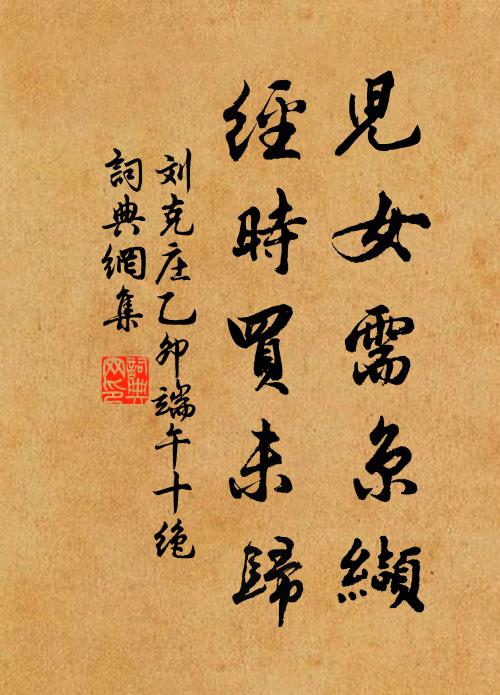 兒女需糸纈
經時買未歸
刘克庄乙卯端午十绝
詞典網集
詞典
网印